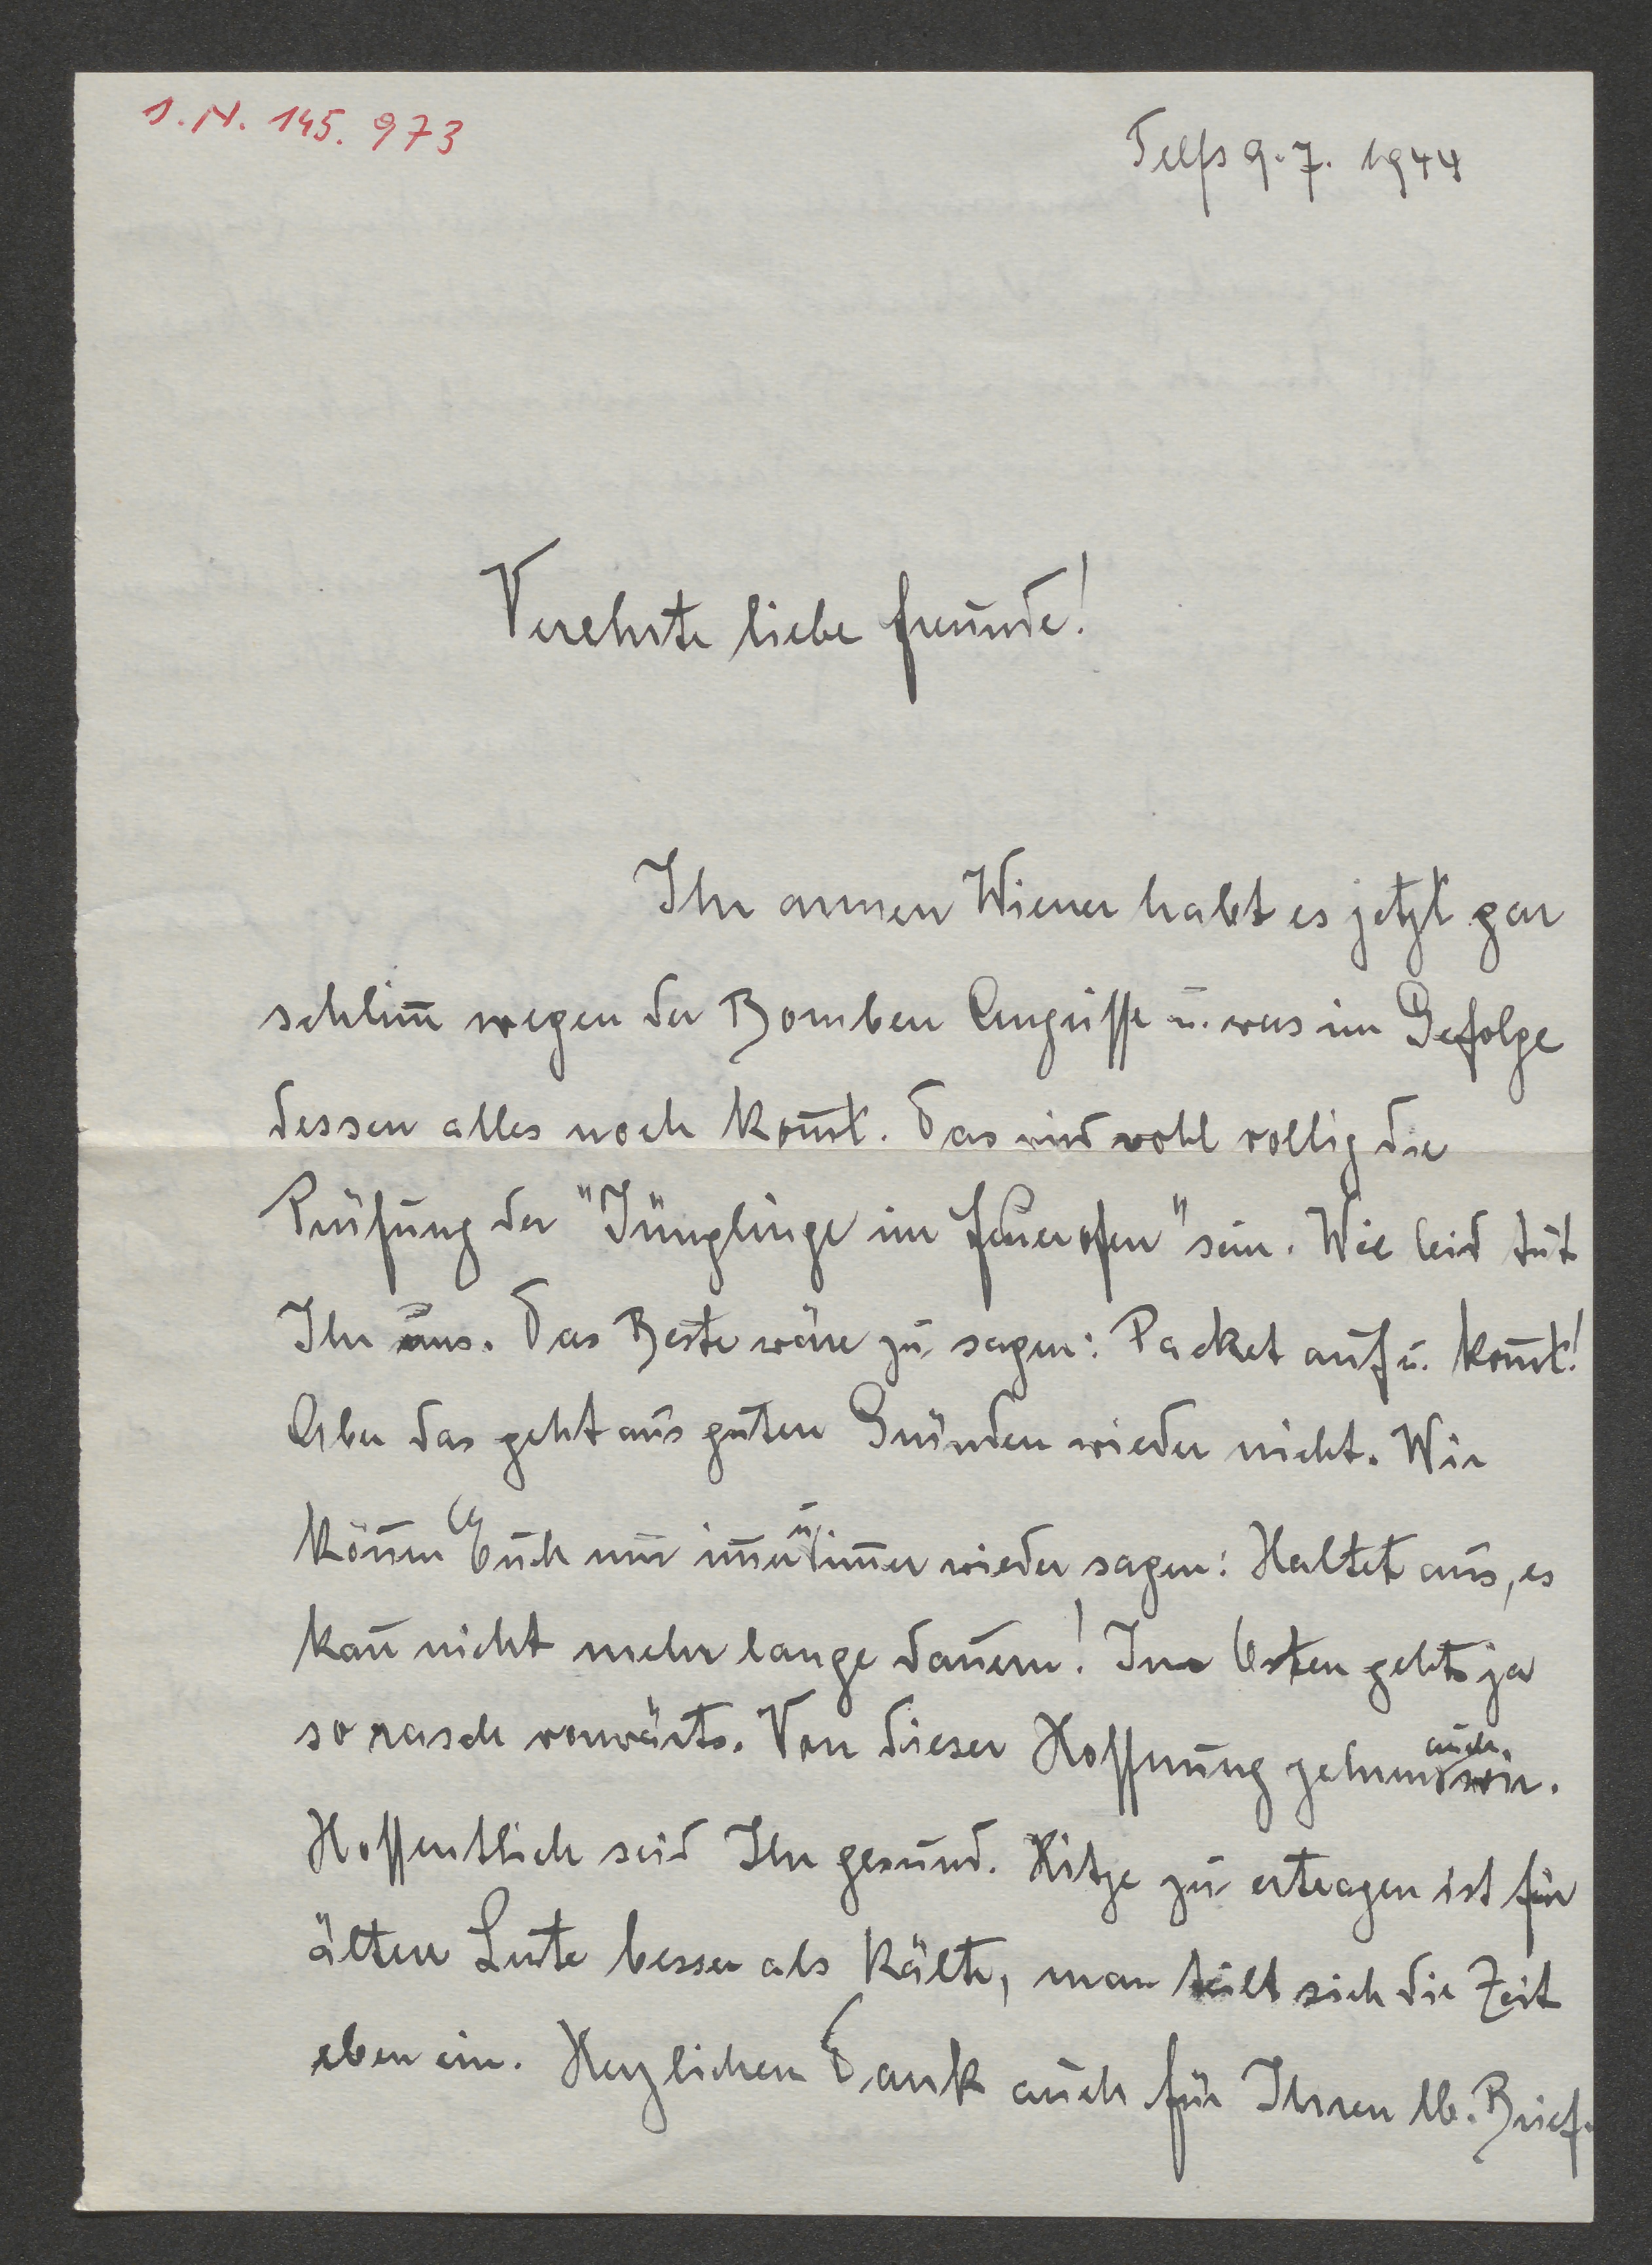 I. N. 145.973
Telfs 9.7. 1944
Verehrte liebe Freunde!
Ihr armen Wiener habt es jetzt gar
schlim̄ wegen der Bomben Angriffe u. was im Gefolge
dessen alles noch kom̄t. Das wird wohl völlig die
Prüfung der "Jünglinge im Feuerofen" sein. Wie leid tut
Ihr uns. Das Beste wäre zu sagen: Packet auf u. kom̄t!
Aber das geht aus guten Gründen wieder nicht. Wir
kön̄en Euch nur im̄er u. im̄er wieder sagen: Haltet aus, es
kan̄ nicht mehr lange dauern! Im Osten gehts ja
so rasch vorwärts. Von dieser Hoffnung zehren auch wir.
Hoffentlich seid Ihr gesund. Hitze zu ertragen ist für
ältere Leute besser als Kälte, man teilt sich die Zeit
eben ein. Herzlichen Dank auch für Ihren lb. Brief.